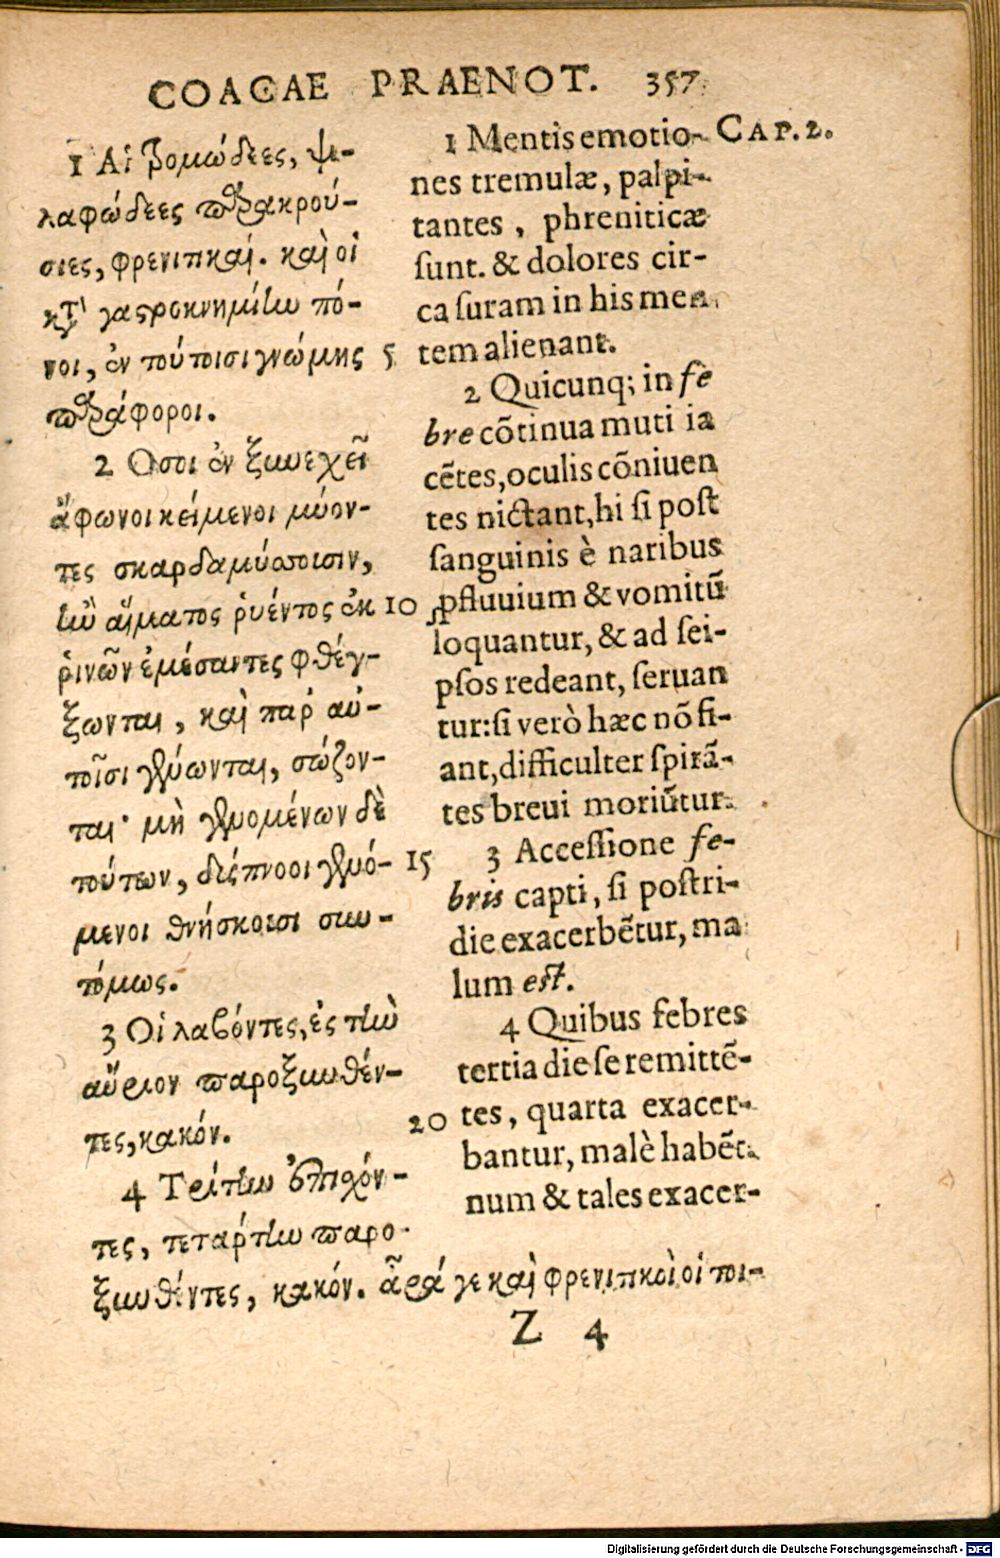 COACAE PRAENOT. 357
1 Αἱ τρομώδεες, ψη-
λαφώδεες παρακρού-
σιες, φρενιτικαί. καὶ οἱ
κατὰ γαστροκνημίην πό-
νοι, ἐν τούτοισι γνώμης 5
παράφοροι.
2 Οσοι ἐν ξυνεχεῖ
ἄφωνοι κείμενοι μύον-
τες σκαρδαμύσσοισιν,
ἢν αἵματος ῥυέντος ἐκ 10
ῥινῶν ἐμέσαντες φθέγ-
ξωνται, καὶ παρ αὑ-
τοῖσι γένωνται, σώζον-
ται· μὴ γενομένων δὲ
τούτεων, δύσπνοοι γενό- 15
μενοι θνήσκουσι συν-
τόμως.
3 Οἱ λαβόντες, ἐς τὴν
αὔριον παροξυνθέν-
τες, κακόν. 20
4 Τρίτην ἐπιχόν-
τες, τετάρτην παρο-
ξυνθέντες, κακόν. ἆρά γε καὶ φρενιτικοὶ οἱ τοι-
CAP. 2.
1 Mentis emotio-
nes tremulæ, palpi-
tantes, phreniticæ
ſunt. & dolores cir-
ca ſuram in his men
tem alienant.
2 Quicunq; in fe
bre cōtinua muti ia
cētes, oculis cōniuen
tes nictant, hi ſi poſt
ſanguinis è naribus
ꝓfluuium & vomitū
loquantur, & ad ſei-
pſos redeant, ſeruan
tur: ſi verò hæc nō fi-
ant, difficulter ſpirā-
tes breui moriūtur.
3 Acceſſione fe-
bris capti, ſi poſtri-
die exacerbētur, ma
lum eſt.
4 Quibus febres
tertia die ſe remittē-
tes, quarta exacer-
bantur, malè habēt.
num & tales exacer-
Z 4
Digitalisierung gefördert durch die Deutsche Forschungsgemeinschaft - DFG